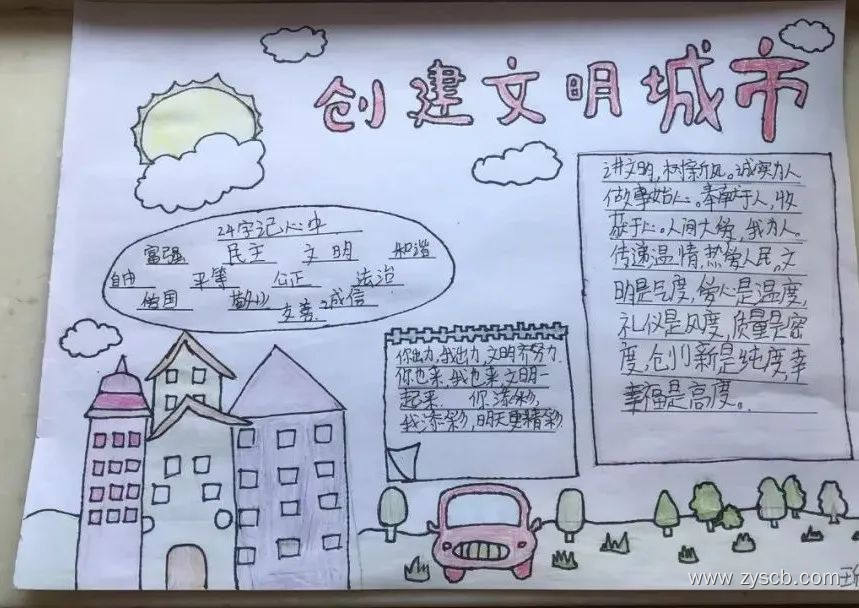 创建文明城市
24字记心中
富强 民主 文明 和谐
自由 平等 公正 法治
爱国 敬业 诚信
友善
你出力,我出力,文明齐努力.
你也来,我也来,文明一
起来. 你添彩,
我添彩,明天更精彩
讲文明,树新风。诚实为人
做事始心。奉献于人,收
获于心。人间大爱,我为人。
传递温情,热爱人民。文
明是气度,爱心是温度,
礼仪是风度,质量是密
度,创新是纯度,幸
幸福是高度。
www.zyscb.com